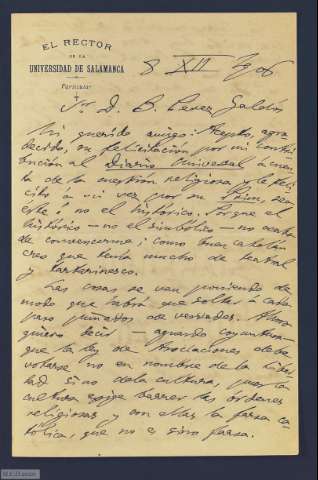 EL RECTOR
DE LA
UNIVERSIDAD DE SALAMANCA
Particular
8 XII 906
Sr. D. B. Perez Galdós
Mi querido amigo: Acepto, agra-
decido, su felicitación por mi contri-
bución al Diario Universal á cuen-
ta de la cuestión religiosa y le feli-
cito á mi vez por su Prim, sea
éste ó no el histórico. Porque el
histórico — no el simbólico — no acaba
de convencerme; como buen catalán
creo que tenía mucho de teatral
y tartarinesco.
Las cosas se van poniendo de
modo que habrá que soltar á cada
paso puñados de verdades. Ahora
quiero decir — aguardo coyuntura —
que la ley de Asociaciones debe
votarse no en nombre de la liber
tad sino de la cultura, pues la
cultura exige barrer las órdenes
religiosas y con ellas la farsa ca-
tólica, que no es sino farsa.